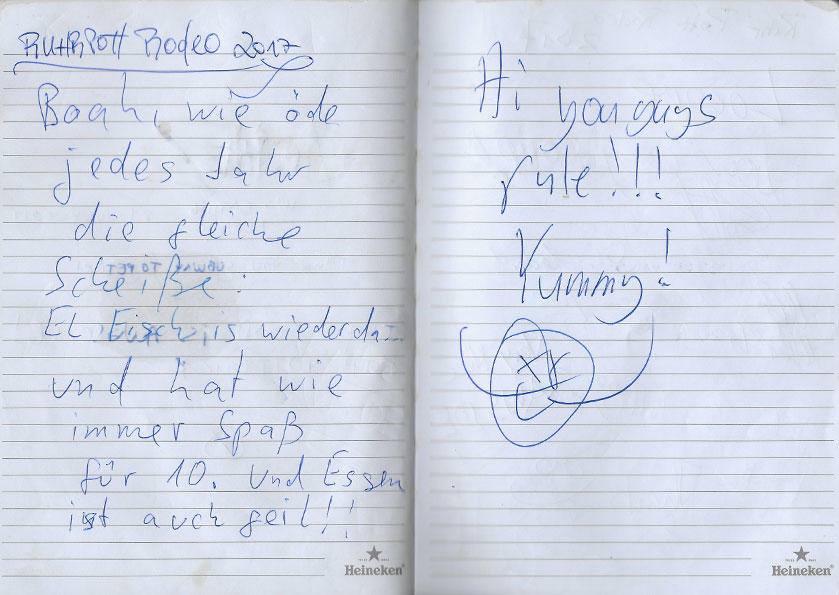 RUHRPOTT RODEO 2017
Boah, wie öde
jedes Jahr
die gleiche
Scheiße:
EL Fisch is wieder da...
und hat wie
immer Spaß
für 10. und Essen
ist auch geil!!
Heineken
Hi
you guys
rule!!!
Yummy!
XX
Heineken